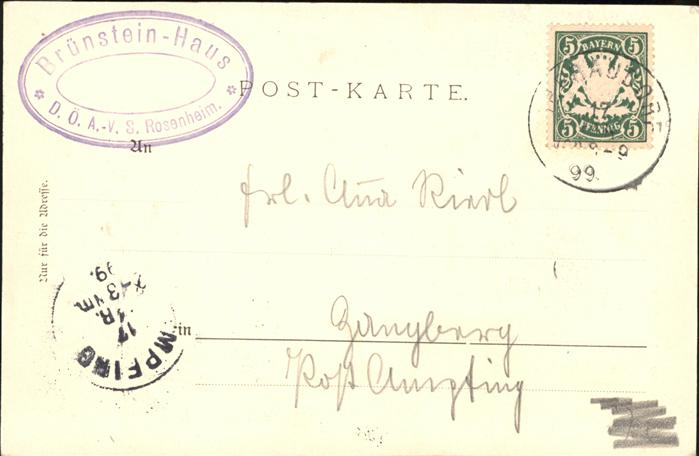 Brünstein-Haus
D. Ö. A.-V. S. Rosenheim.
POST-KARTE.
5 BAYERN 5
5 PFENNIG 5
17
8-9
99.
An
Frl. Anna Riedl
Nur für die Adresse.
in
Zangberg
Post Ampfing
MPFING
17
99.